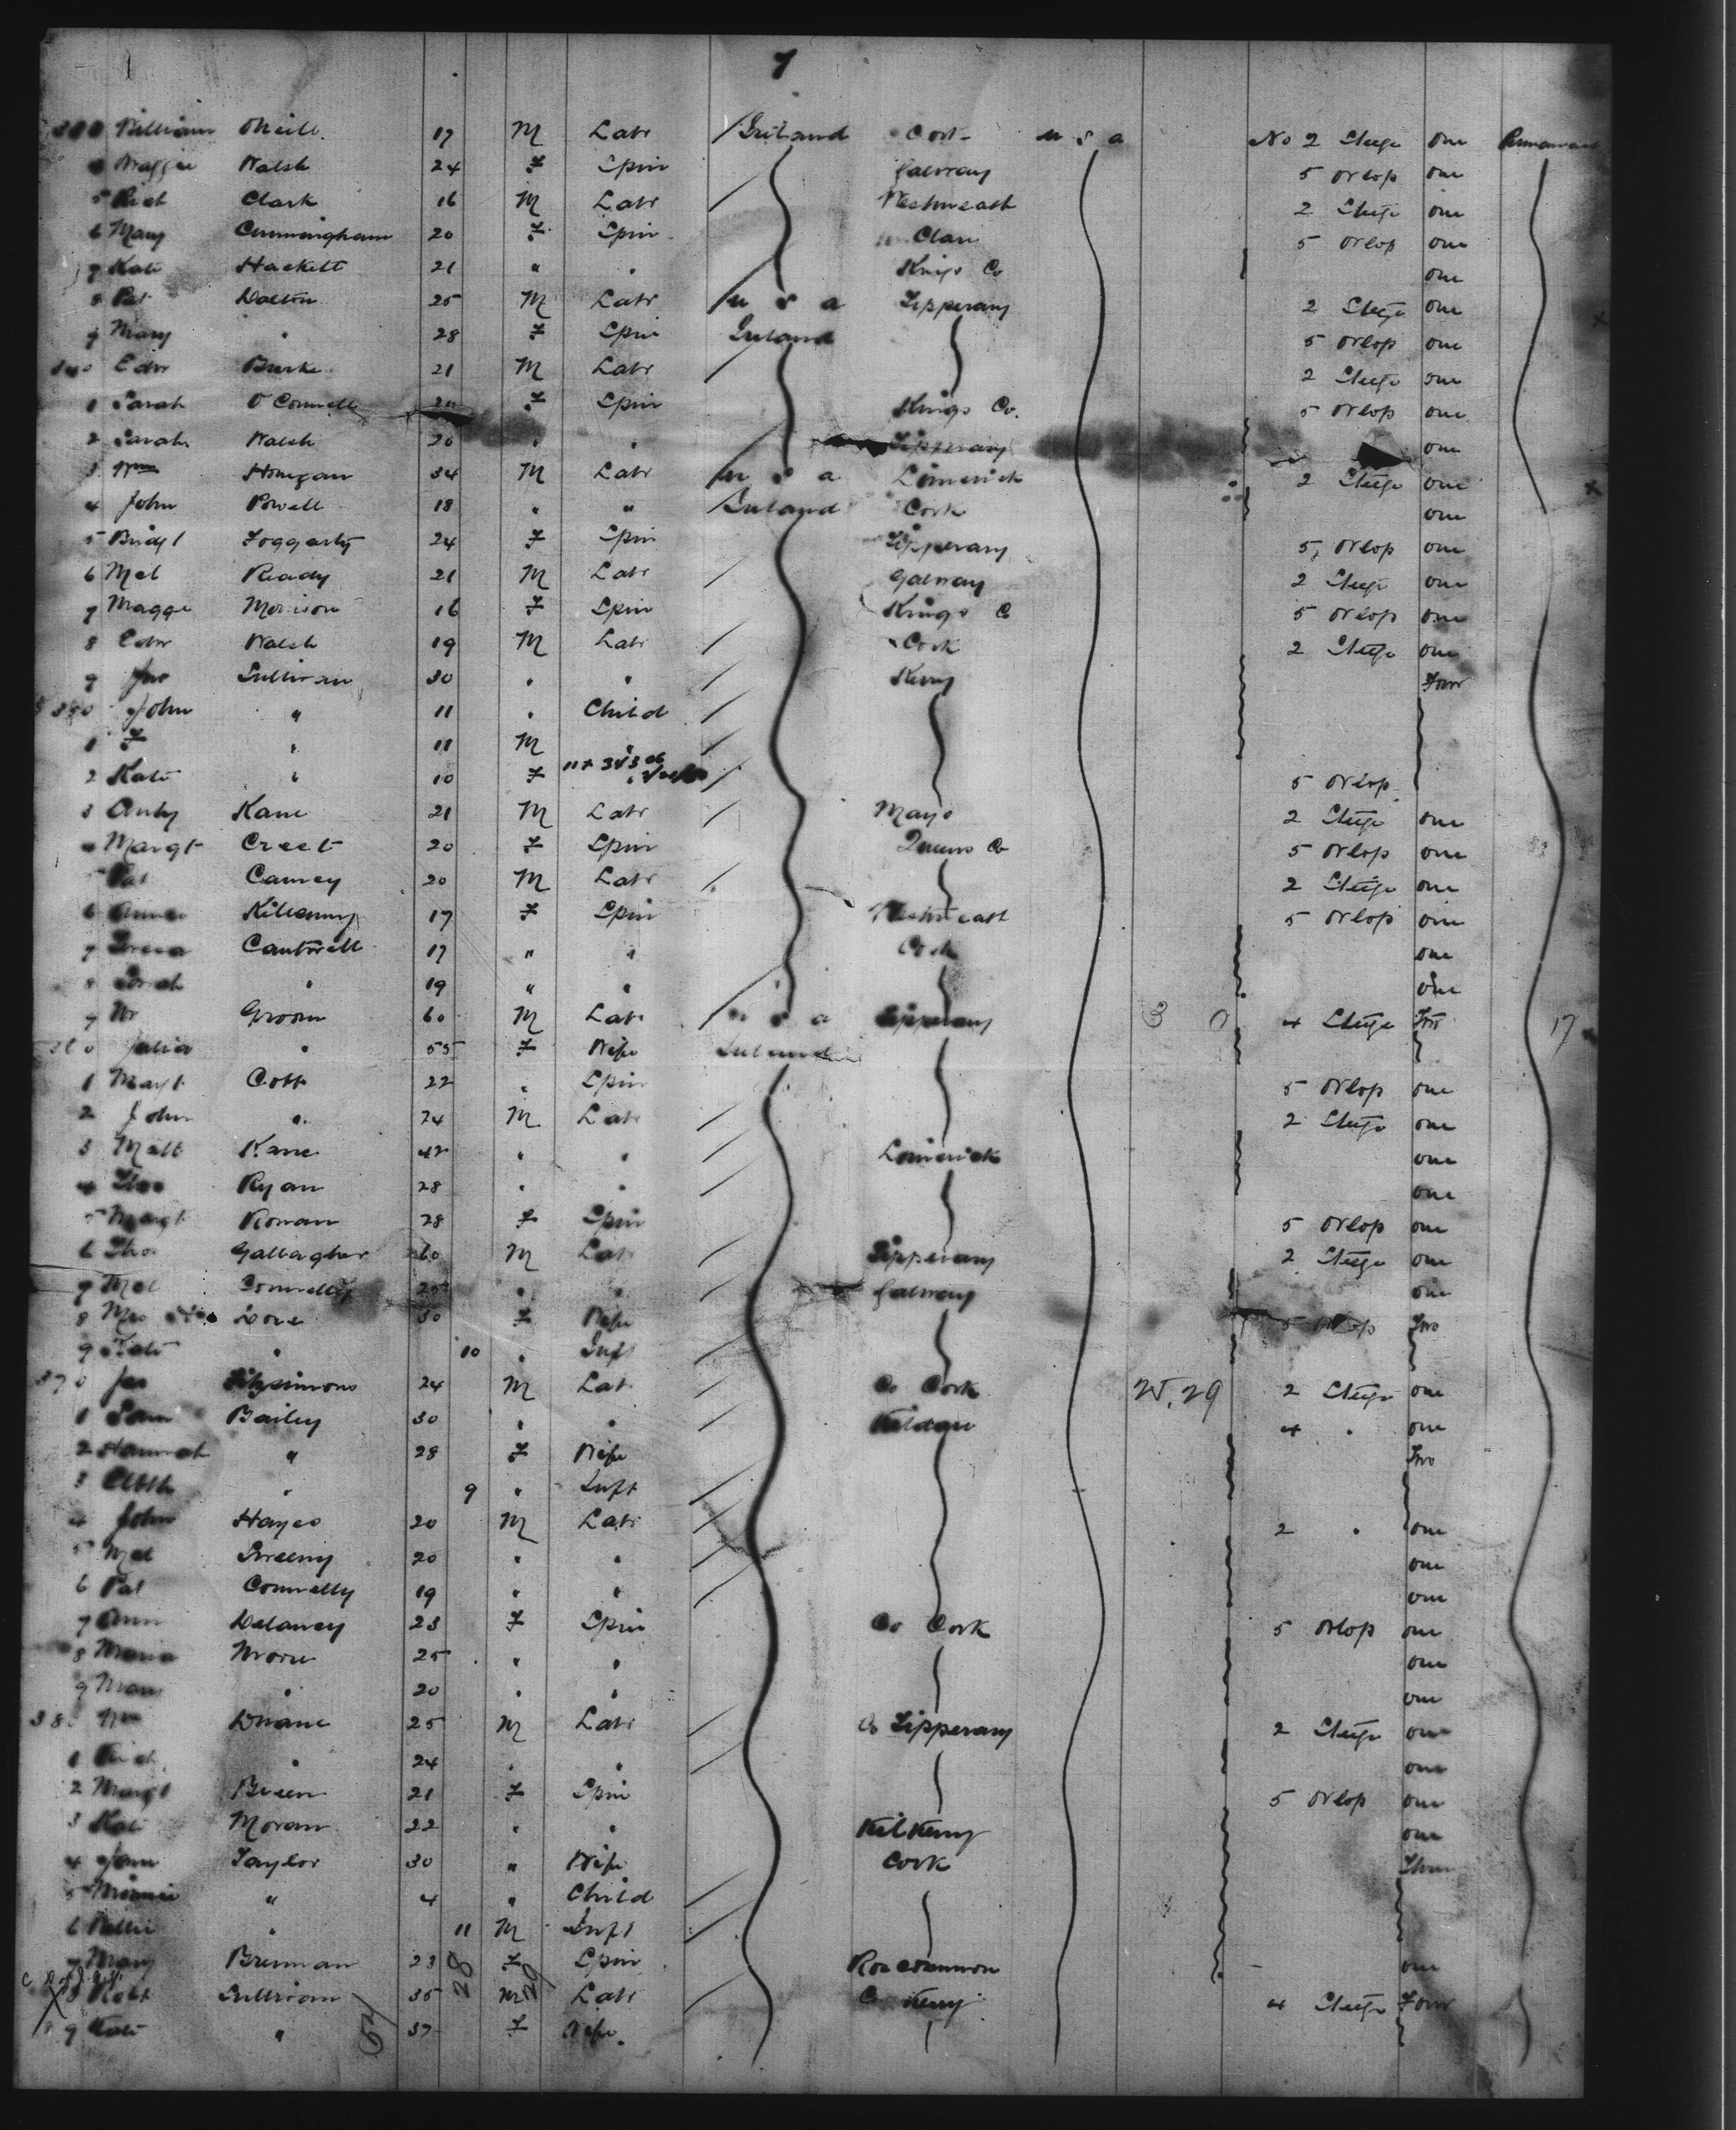 7
William Oneill 17 M Labr Ireland Cork u s a No 2 Steege one Permanent
Maggie Walsh 24 F Spin Galway 5 Orlop one
5 Rich Clark 16 M Labr Westmeath 2 Steege one
6 Mary Cunningham 20 F Spin Clare 5 Orlop one
7 Kate Hackett 21 " " Kings Co one
8 Pat Dalton 25 M Labr u s a Tipperary 2 Steege one
9 Mary " 28 F Spin Ireland 5 Orlop one
340 Edw Burke 21 M Labr 2 Steege one
1 Sarah O'Connell F Spin Kings Co. 5 Orlop one
2 Sarah Walsh 20 " " Tipperary one
3 Wm Honigan 34 M Labr u s a Limerick 2 Steege one
4 John Powell 18 " " Ireland Cork one
5 Bridgt Foggarty 24 F Spin Tipperary 5 Orlop one
6 Mel Ready 21 M Labr Galway 2 Steege one
7 Magge Morrison 16 F Spin Kings C 5 Orlop one
8 Edw Walsh 19 M Labr Cork 2 Steege one
9 Sullivan 30 " " Kerry Four
350 John " 11 " Child
1 " 11 M "
2 Kate " 10 F " 5 Orlop
3 Anty Kane 21 M Labr Mayo 2 Steege one
4 Margt Creet 20 F Spin Queens Co 5 Orlop one
5 Pat Carney 20 M Labr 2 Steege one
6 Annie 17 F Spin Westmeath 5 Orlop one
7 Cantwell 17 " " Cork one
8 Sarah " 19 " " one
9 Groom 60 M Labr u s a Tipperary 3 0 4 Steege Two 17
360 Julia " 55 F Wife Ireland
1 Margt Cott 22 " Spin 5 Orlop one
2 John " 24 M Labr 2 Steege one
3 Matt Kane 42 " " Limerick one
4 Thos Ryan 28 " " one
5 Margt Ronan 28 F Spin 5 Orlop one
6 Tho Gallagher 60 M Labr Tipperary 2 Steege one
7 Mel Connelly " " Galway one
8 Mrs Dove 30 F Wife 5 Orlop Two
9 Kate " 10 " Inft
370 Jas Fitzsimons 24 M Lab Co Cork 25.29 2 Steege one
1 Sam Bailey 30 " " Kildare 4 " one
2 Hannah " 28 F Wife Two
3 " 9 " Inft
4 John Hayes 20 M Labr 2 " one
5 Mel Sweeny 20 " " one
6 Pat Connelly 19 " " one
7 Ann Delaney 23 F Spin Co Cork 5 Orlop one
8 Maria Moore 25 " " one
9 Mary " 20 " " one
380 Wm Duane 25 M Labr Co Tipperary 2 Steege one
1 " 24 " " one
2 Margt Breen 21 F Spin 5 Orlop one
3 Kate Moran 22 " " Kilkenny one
4 Jane Taylor 30 " Wife Cork Three
5 Minnie " 4 " Child
6 Willie " 11 M Inft
7 Mary Brennan 23 F Spin Roscommon one
8 Robt Sullivan 35 M Labr Co Kerry 4 Steege Four
9 Kate " 37 F Wife
28 29